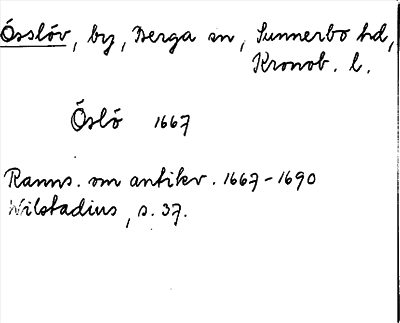 Össlöv, by, Berga sn, Sunnerbo hd,
Kronob. l.
Ösló 1667
Ranns. om antikv. 1667-1690
Wilstadius, s. 37.